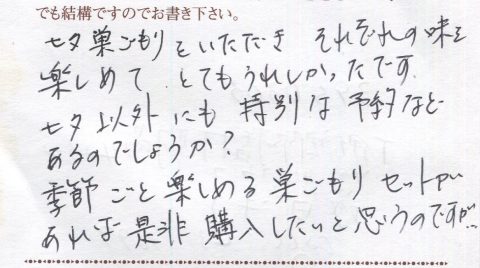 でも結構ですのでお書き下さい。
七夕巣ごもりといただき それぞれの味を
楽しめて とてもうれしかったです
七夕以外にも 特別な予約など
あるのでしょうか?
季節ごと楽しめる巣ごもりセットが
あれば是非購入したいと思うのですが…